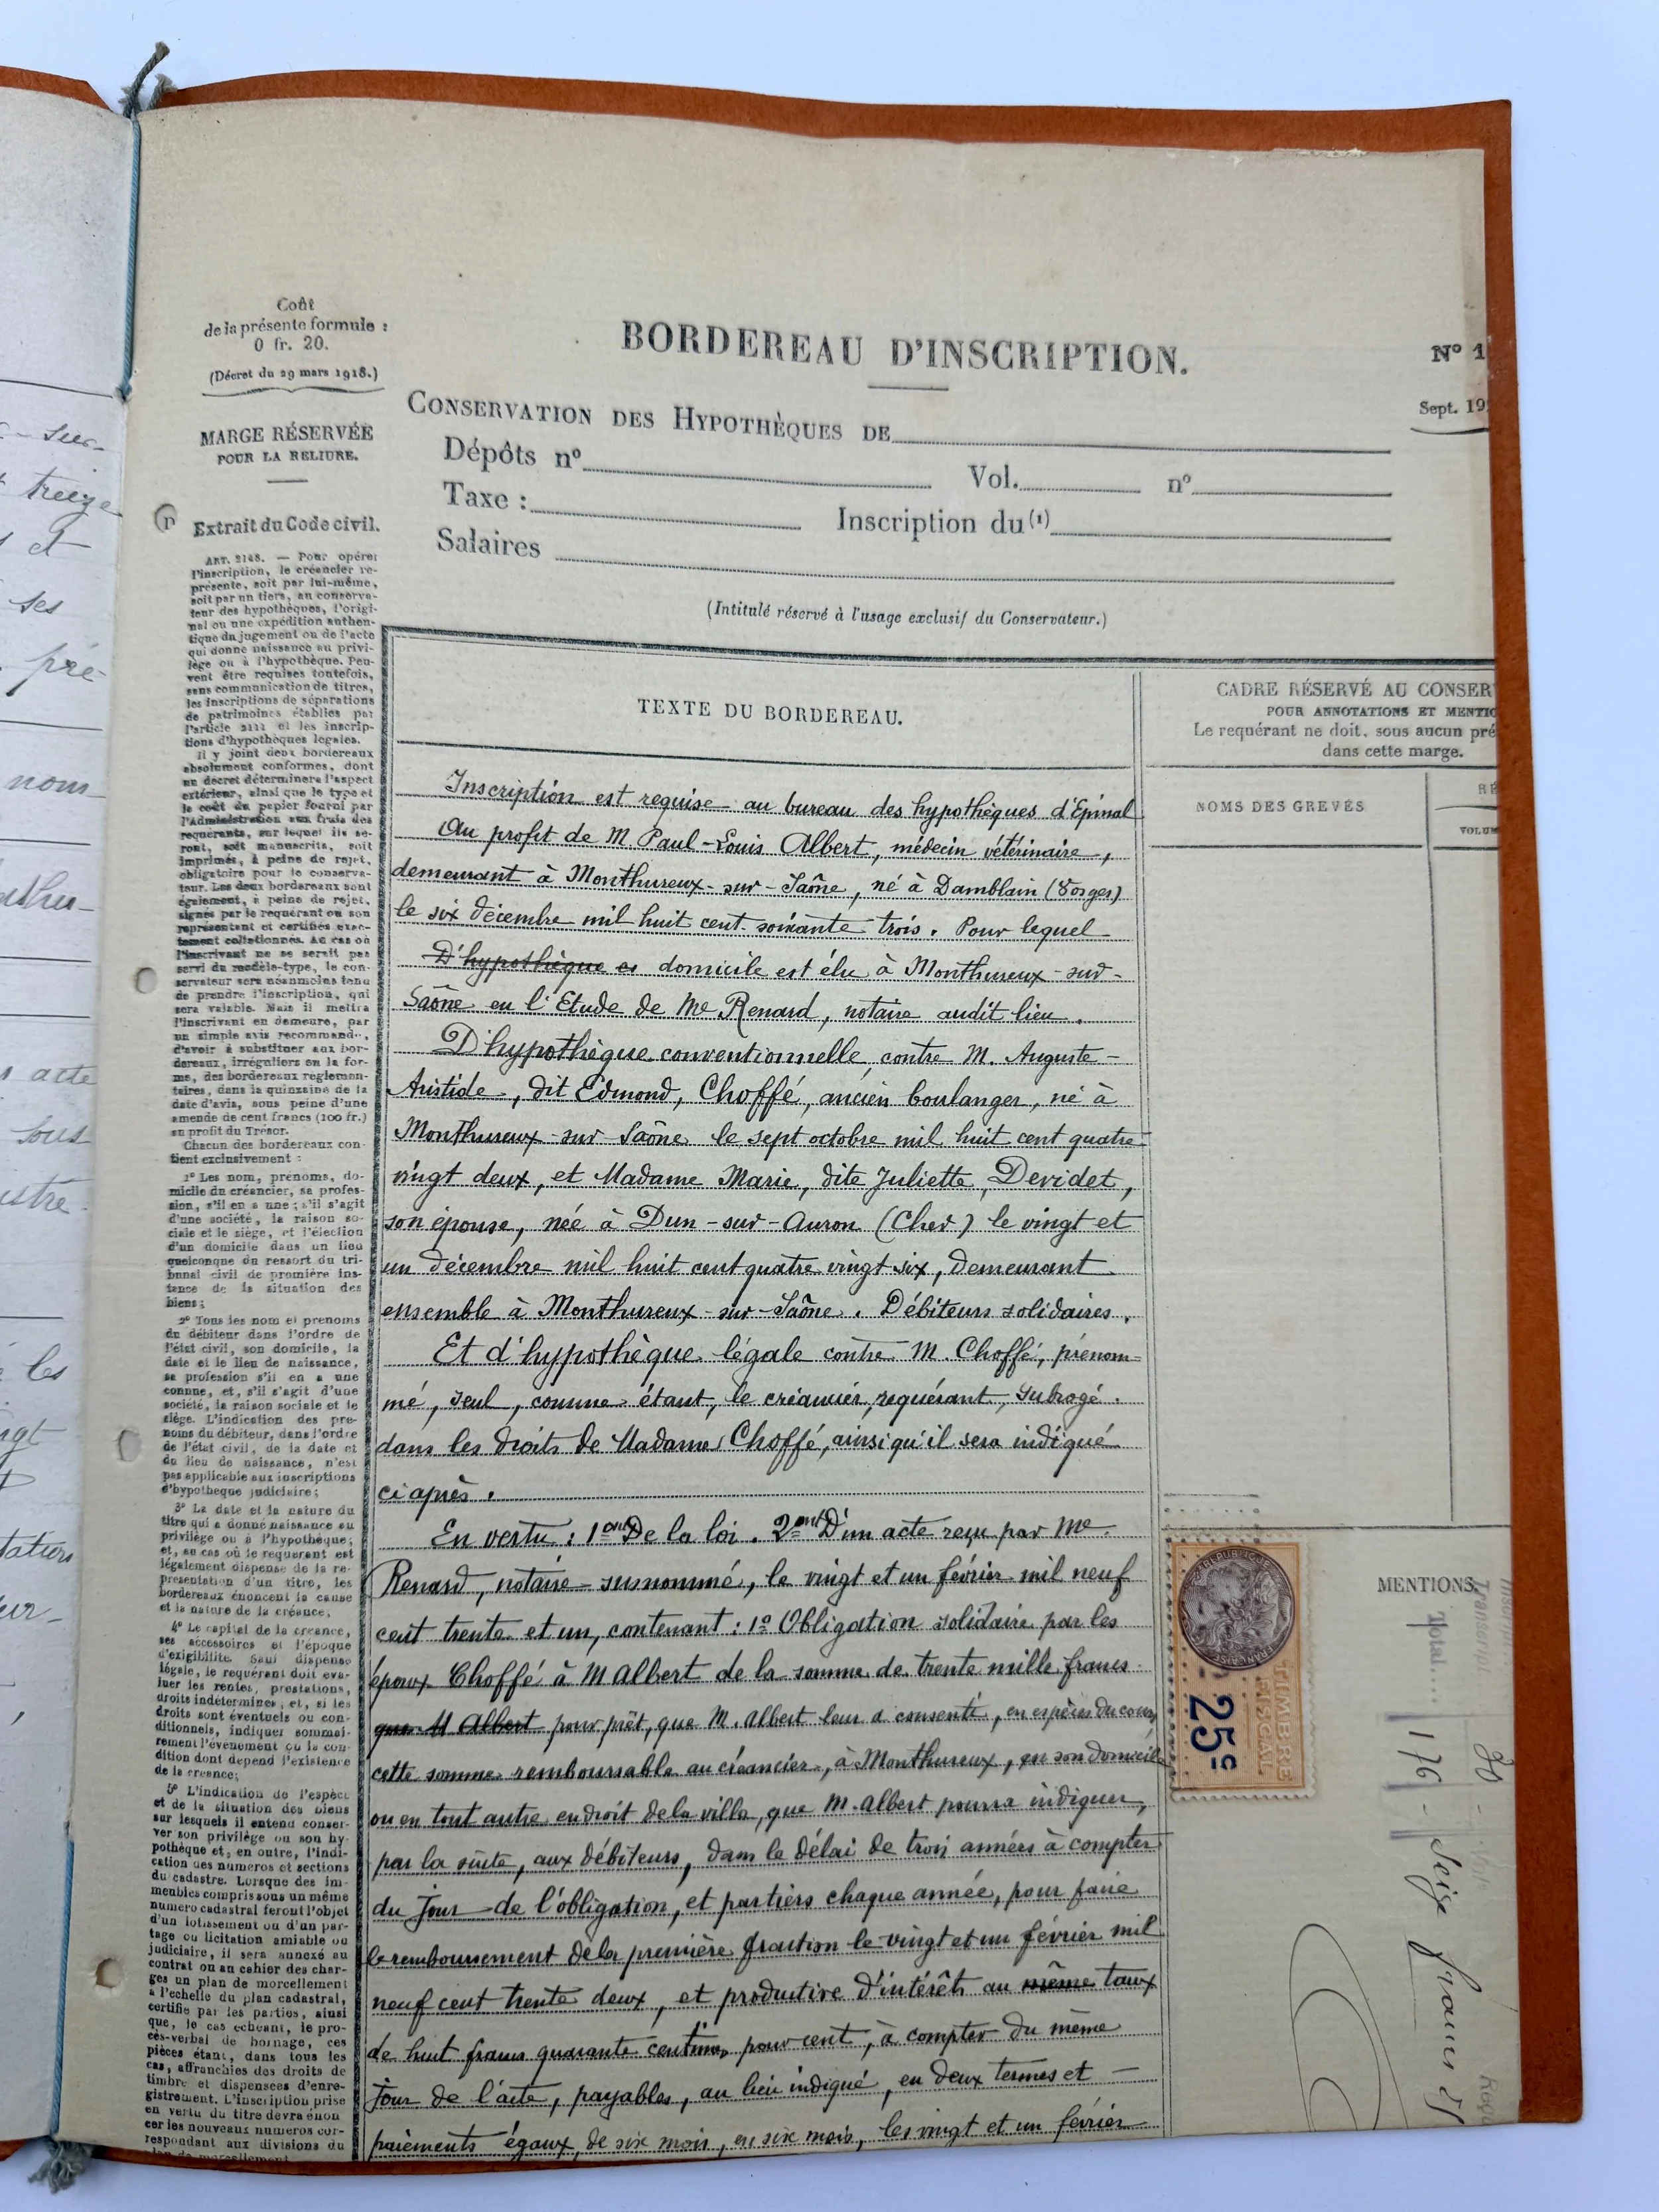 - sur-
treize
et
ses
pré-
nom
acte
sous
les
Coût
de la présente formule :
0 fr. 20.
(Décret du 29 mars 1918.)
MARGE RÉSERVÉE
POUR LA RELIURE.
Extrait du Code civil.
ART. 2148. — Pour opérer
l'inscription, le créancier re-
présente, soit par lui-même,
soit par un tiers, au conserva-
teur des hypothèques, l'origi-
nal ou une expédition authen-
tique du jugement ou de l'acte
qui donne naissance au privi-
lège ou à l'hypothèque. Peu-
vent être requises toutefois,
sans communication de titres,
les inscriptions de séparations
de patrimoines établies par
l'article 2111 et les inscrip-
tions d'hypothèques légales.
Il y joint deux bordereaux
absolument conformes, dont
un décret déterminera l'aspect
extérieur, ainsi que le type et
le coût du papier fourni par
l'Administration aux frais des
requérants, sur lequel ils se-
ront, soit manuscrits, soit
imprimés, à peine de rejet,
obligatoire pour le conserva-
teur. Les deux bordereaux sont
également, à peine de rejet,
signés par le requérant ou son
représentant et certifiés exac-
tement collationnés. Au cas où
l'inscrivant ne se serait pas
servi du modèle-type, le con-
servateur sera néanmoins tenu
de prendre l'inscription, qui
sera valable. Mais il mettra
l'inscrivant en demeure, par
un simple avis recommandé,
d'avoir à substituer aux bor-
dereaux, irréguliers en la for-
me, des bordereaux réglemen-
taires, dans la quinzaine de la
date d'avis, sous peine d'une
amende de cent francs (100 fr.)
au profit du Trésor.
Chacun des bordereaux con-
tient exclusivement :
1° Les nom, prénoms, do-
micile du créancier, sa profes-
sion, s'il en a une ; s'il s'agit
d'une société, la raison so-
ciale et le siège, et l'élection
d'un domicile dans un lieu
quelconque du ressort du tri-
bunal civil de première ins-
tance de la situation des
biens ;
2° Tous les nom et prénoms
du débiteur dans l'ordre de
l'état civil, son domicile, la
date et le lieu de naissance,
sa profession s'il en a une
connue, et, s'il s'agit d'une
société, la raison sociale et le
siège. L'indication des pré-
noms du débiteur, dans l'ordre
de l'état civil, de la date et
du lieu de naissance, n'est
pas applicable aux inscriptions
d'hypothèque judiciaire ;
3° La date et la nature du
titre qui a donné naissance au
privilège ou à l'hypothèque ;
et, au cas où le requérant est
légalement dispensé de la re-
présentation d'un titre, les
bordereaux énoncent la cause
et la nature de la créance,
4° Le capital de la créance,
ses accessoires et l'époque
d'exigibilité. Sauf dispense
légale, le requérant doit éva-
luer les rentes, prestations,
droits indéterminés, et, si les
droits sont éventuels ou con-
ditionnels, indiquer sommai-
rement l'événement ou la con-
dition dont dépend l'existence
de la créance;
5° L'indication de l'espèce
et de la situation des biens
sur lesquels il entend conser-
ver son privilège ou son hy-
pothèque et, en outre, l'indi-
cation des numéros et sections
du cadastre. Lorsque des im-
meubles compris sous un même
numéro cadastral feront l'objet
d'un lotissement ou d'un par-
tage ou licitation amiable ou
judiciaire, il sera annexé au
contrat ou au cahier des char-
ges un plan de morcellement
à l'échelle du plan cadastral,
certifié par les parties, ainsi
que, le cas échéant, le pro-
cès-verbal de bornage, ces
pièces étant, dans tous les
cas, affranchies des droits de
timbre et dispensées d'enre-
gistrement. L'inscription prise
en vertu du titre devra énon
cer les nouveaux numéros cor-
respondant aux divisions du
BORDEREAU D'INSCRIPTION.
N° 1
Sept. 19
CONSERVATION DES HYPOTHÈQUES DE
Dépôts n° Vol. n°
Taxe : Inscription du (1)
Salaires
(Intitulé réservé à l'usage exclusif du Conservateur.)
TEXTE DU BORDEREAU.
CADRE RÉSERVÉ AU CONSER
POUR ANNOTATIONS ET MENTIO
Le requérant ne doit, sous aucun pré
dans cette marge.
NOMS DES GREVÉS
RÉ
VOLUM
Inscription est requise au bureau des hypothèques d'Epinal
Au profit de M. Paul-Louis Albert, médecin vétérinaire,
demeurant à Monthureux-sur-Saône, né à Damblain (Vosges)
le six décembre mil huit cent soixante trois. Pour lequel
D'hypothèque es domicile est élu à Monthureux-sur-
Saône en l'Etude de Me Renard, notaire audit lieu.
D'hypothèque conventionnelle, contre M. Auguste-
Aristide, dit Edmond, Choffé, ancien boulanger, né à
Monthureux-sur-Saône le sept octobre mil huit cent quatre
vingt deux, et Madame Marie, dite Juliette, Devidet,
son épouse, née à Dun-sur-Auron (Cher) le vingt et
un décembre mil huit cent quatre vingt six, demeurant
ensemble à Monthureux-sur-Saône. Débiteurs solidaires.
Et d'hypothèque légale contre M. Choffé, prénom-
mé, seul, comme étant, le créancier, requérant, subrogé
dans les droits de Madame Choffé, ainsi qu'il sera indiqué
ci après.
En vertu : 1ent De la loi. 2ent D'un acte reçu par Me
Renard, notaire susnommé, le vingt et un février mil neuf
cent trente et un, contenant : 1° Obligation solidaire par les
époux Choffé à M Albert de la somme de trente mille francs
que M Albert pour prêt, que M. Albert leur a consenti, en espèces du cours
cette somme remboursable au créancier, à Monthureux, en son domicile
ou en tout autre endroit de la ville, que M. Albert pourra indiquer,
par la suite, aux débiteurs, dans le délai de trois années à compter
du jour de l'obligation, et par tiers chaque année, pour faire
le remboursement de la première fraction le vingt et un février mil
neuf cent trente deux, et productive d'intérêts au même taux
de huit francs quarante centimes pour cent, à compter du même
jour de l'acte, payables, au lieu indiqué, en deux termes et
paiements égaux, de six mois, en six mois, les vingt et un février
MENTIONS.
RÉPUBLIQUE FRANÇAISE
TIMBRE
FISCAL
25c
Total.... 176
francs